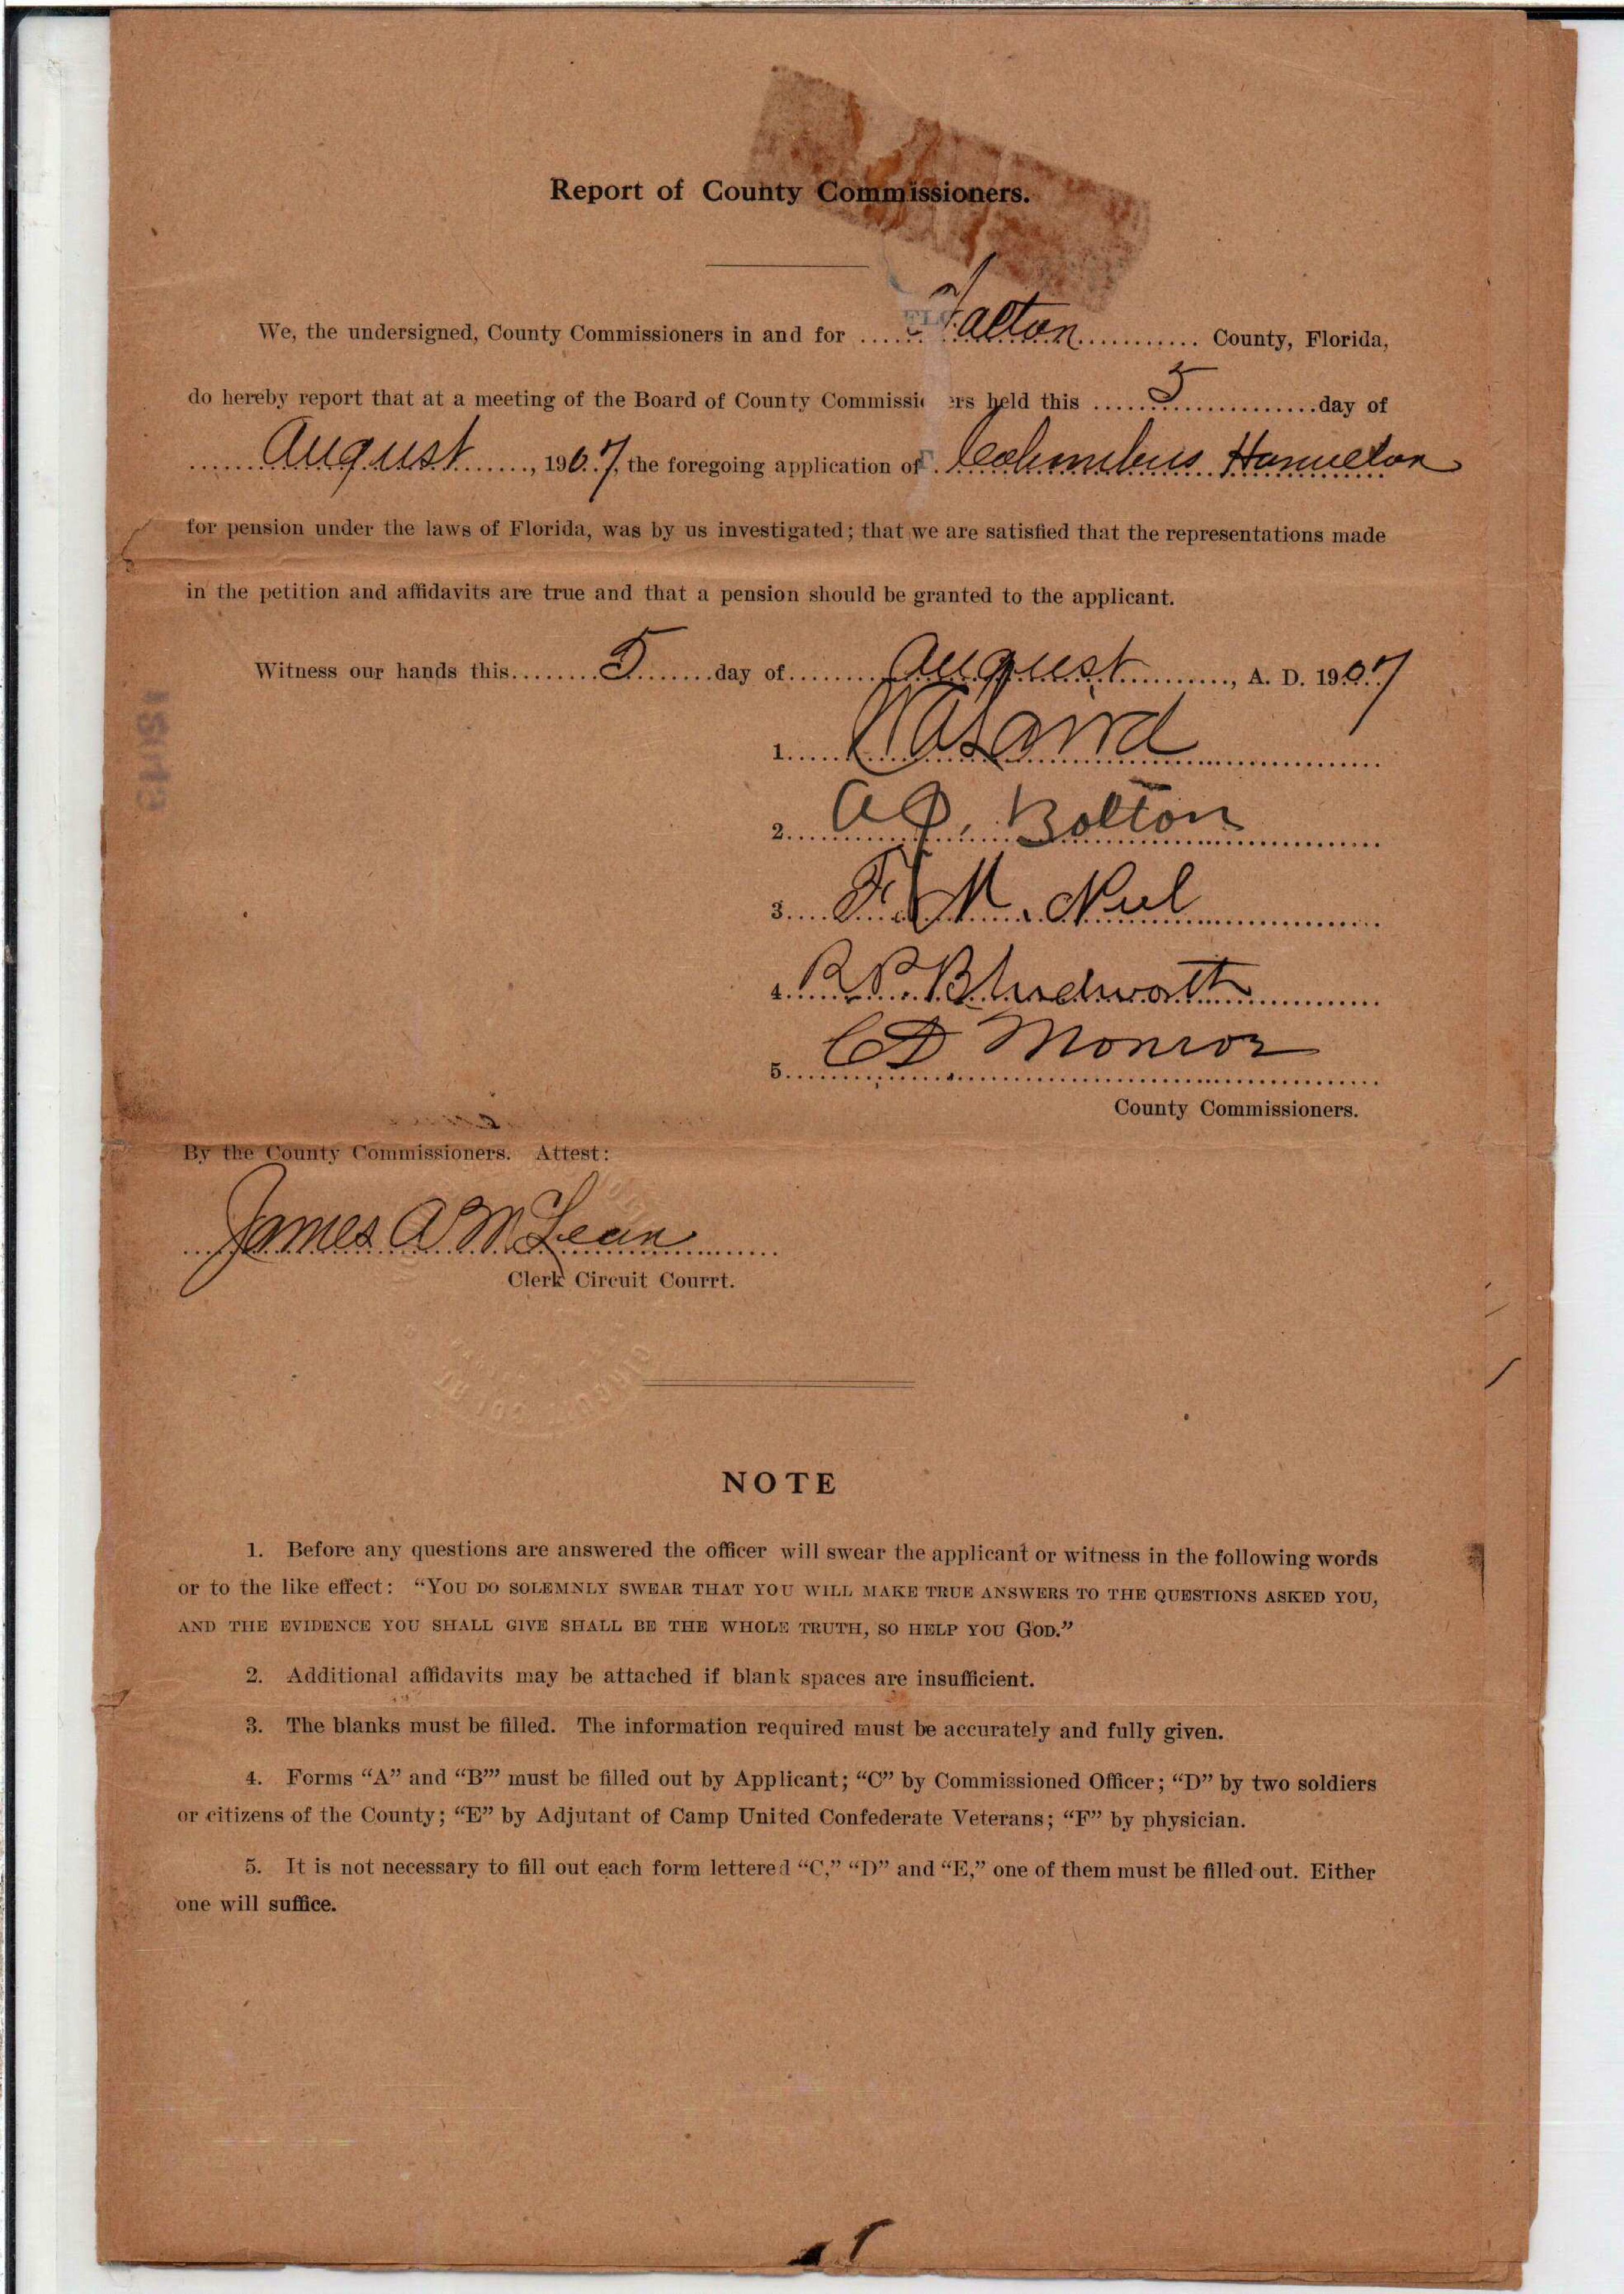 Report of County Commissioners.
We, the undersigned, County Commissioners in and for Walton County, Florida,
do hereby report that at a meeting of the Board of County Commissi ers held this 5 day of
August, 1907, the foregoing application of Columbus Hamilton
for pension under the laws of Florida, was by us investigated; that we are satisfied that the representations made
in the petition and affidavits are true and that a pension should be granted to the applicant.
Witness our hands this 5 day of August, A. D. 1907
1.
2. Bolton
3. F. M. Neel
4. R. P. Bludworth
5. C D Monroe
County Commissioners.
By the County Commissioners. Attest:
James A McLean
Clerk Circuit Courrt.
NOTE
1. Before any questions are answered the officer will swear the applicant or witness in the following words
or to the like effect: “YOU DO SOLEMNLY SWEAR THAT YOU WILL MAKE TRUE ANSWERS TO THE QUESTIONS ASKED YOU,
AND THE EVIDENCE YOU SHALL GIVE SHALL BE THE WHOLE TRUTH, SO HELP YOU GOD.”
2. Additional affidavits may be attached if blank spaces are insufficient.
3. The blanks must be filled. The information required must be accurately and fully given.
4. Forms “A” and “B’” must be filled out by Applicant; “C” by Commissioned Officer; “D” by two soldiers
or citizens of the County; “E” by Adjutant of Camp United Confederate Veterans; “F” by physician.
5. It is not necessary to fill out each form lettered “C,” “D” and “E,” one of them must be filled out. Either
one will suffice.